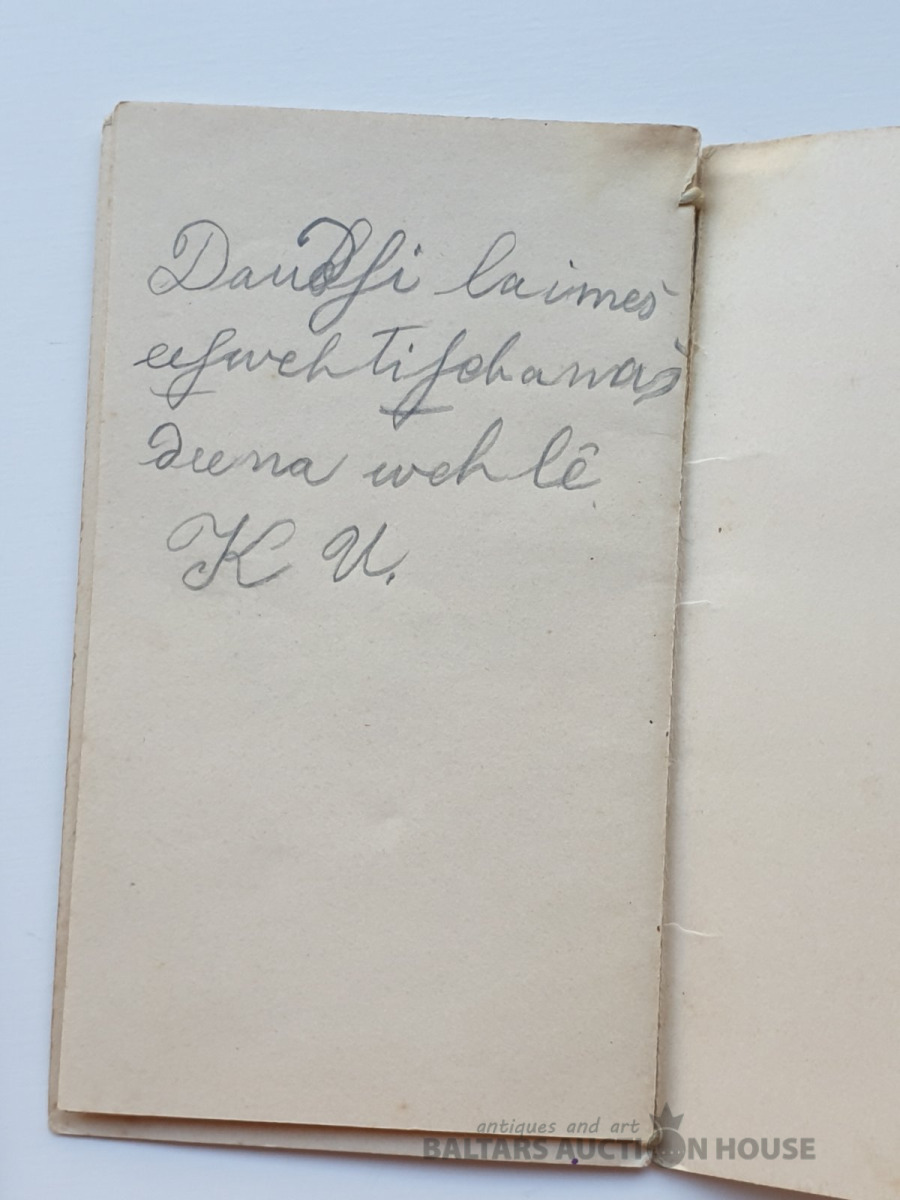 Daudſi laimes
eeſwehtiſchanas
deena wehlê
K U.
antiques and art
BALTARS AUCTION HOUSE